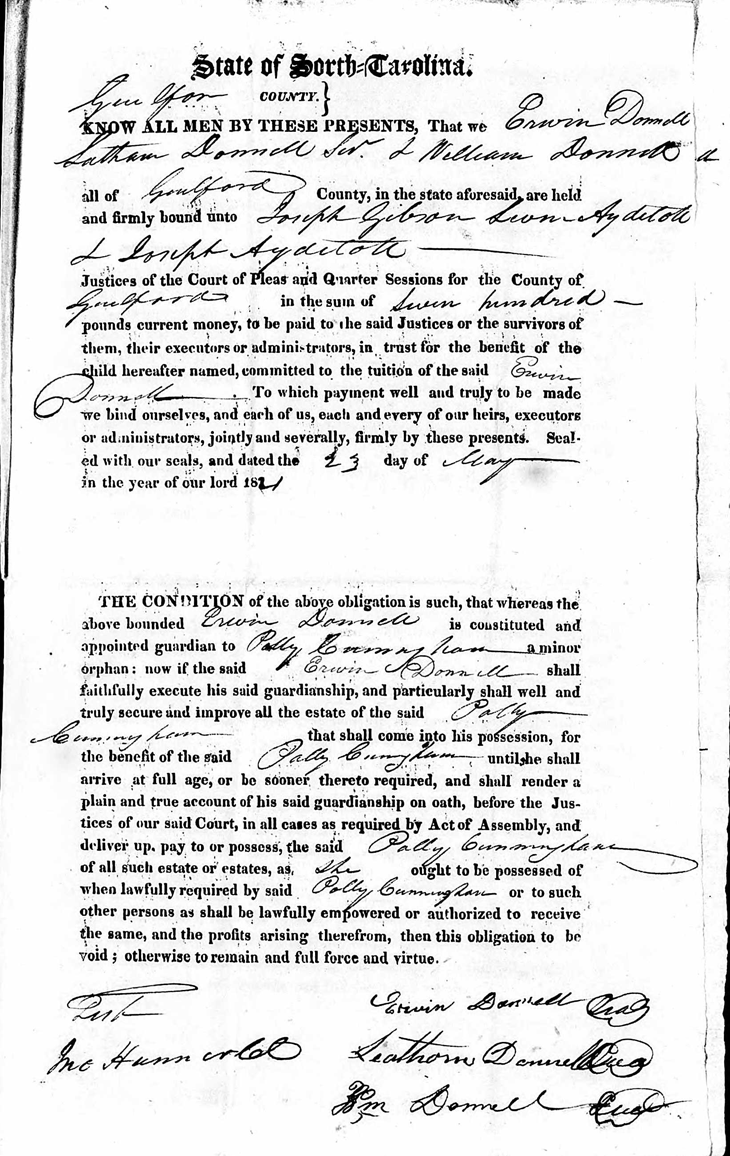 State of North-Carolina.
Guilford COUNTY.}
KNOW ALL MEN BY THESE PRESENTS, That we Erwin Donnell
Latham Donnell Senr. & William Donnell
all of Goulford County, in the state aforesaid, are held
and firmly bound unto Joseph Gibson Levin Aydelott
& Joseph Aydelott
Justices of the Court of Pleas and Quarter Sessions for the County of
Goulford in the sum of Seven hundred
pounds current money, to be paid to the said Justices or the survivors of
them, their executors or administrators, in trust for the benefit of the
child hereafter named, committed to the tuition of the said Erwin
Donnell. To which payment well and truly to be made
we bind ourselves, and each of us, each and every of our heirs, executors
or administrators, jointly and severally, firmly by these presents. Seal-
ed with our seals, and dated the 23 day of May
in the year of our lord 1821
THE CONDITION of the above obligation is such, that whereas the
above bounded Erwin Donnell is constituted and
appointed guardian to Polly Cunningham a minor
orphan: now if the said Erwin Donnell shall
faithfully execute his said guardianship, and particularly shall well and
truly secure and improve all the estate of the said Polly
Cunningham that shall come into his possession, for
the benefit of the said Polly Cuningham until she shall
arrive at full age, or be sooner thereto required, and shall render a
plain and true account of his said guardianship on oath, before the Jus-
tices of our said Court, in all cases as required by Act of Assembly, and
deliver up, pay to or possess, the said Polly Cunningham
of all such estate or estates, as she ought to be possessed of
when lawfully required by said Polly Cunningham or to such
other persons as shall be lawfully empowered or authorized to receive
the same, and the profits arising therefrom, then this obligation to be
void; otherwise to remain and full force and virtue.
Test Erwin Donnell Seal
Jno Hanner Leathom Donnell Seal
Wm Donnell Seal